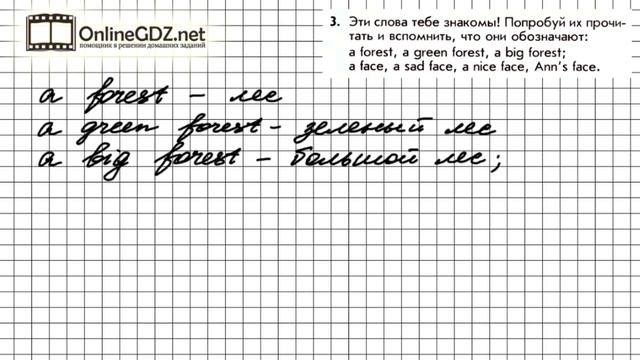 OnlineGDZ.net
помощник в решении домашних заданий
3. Эти слова тебе знакомы! Попробуй их прочи-
тать и вспомнить, что они обозначают:
a forest, a green forest, a big forest;
a face, a sad face, a nice face, Ann's face.
a forest – лес
a green forest – зеленый лес
a big forest – большой лес;